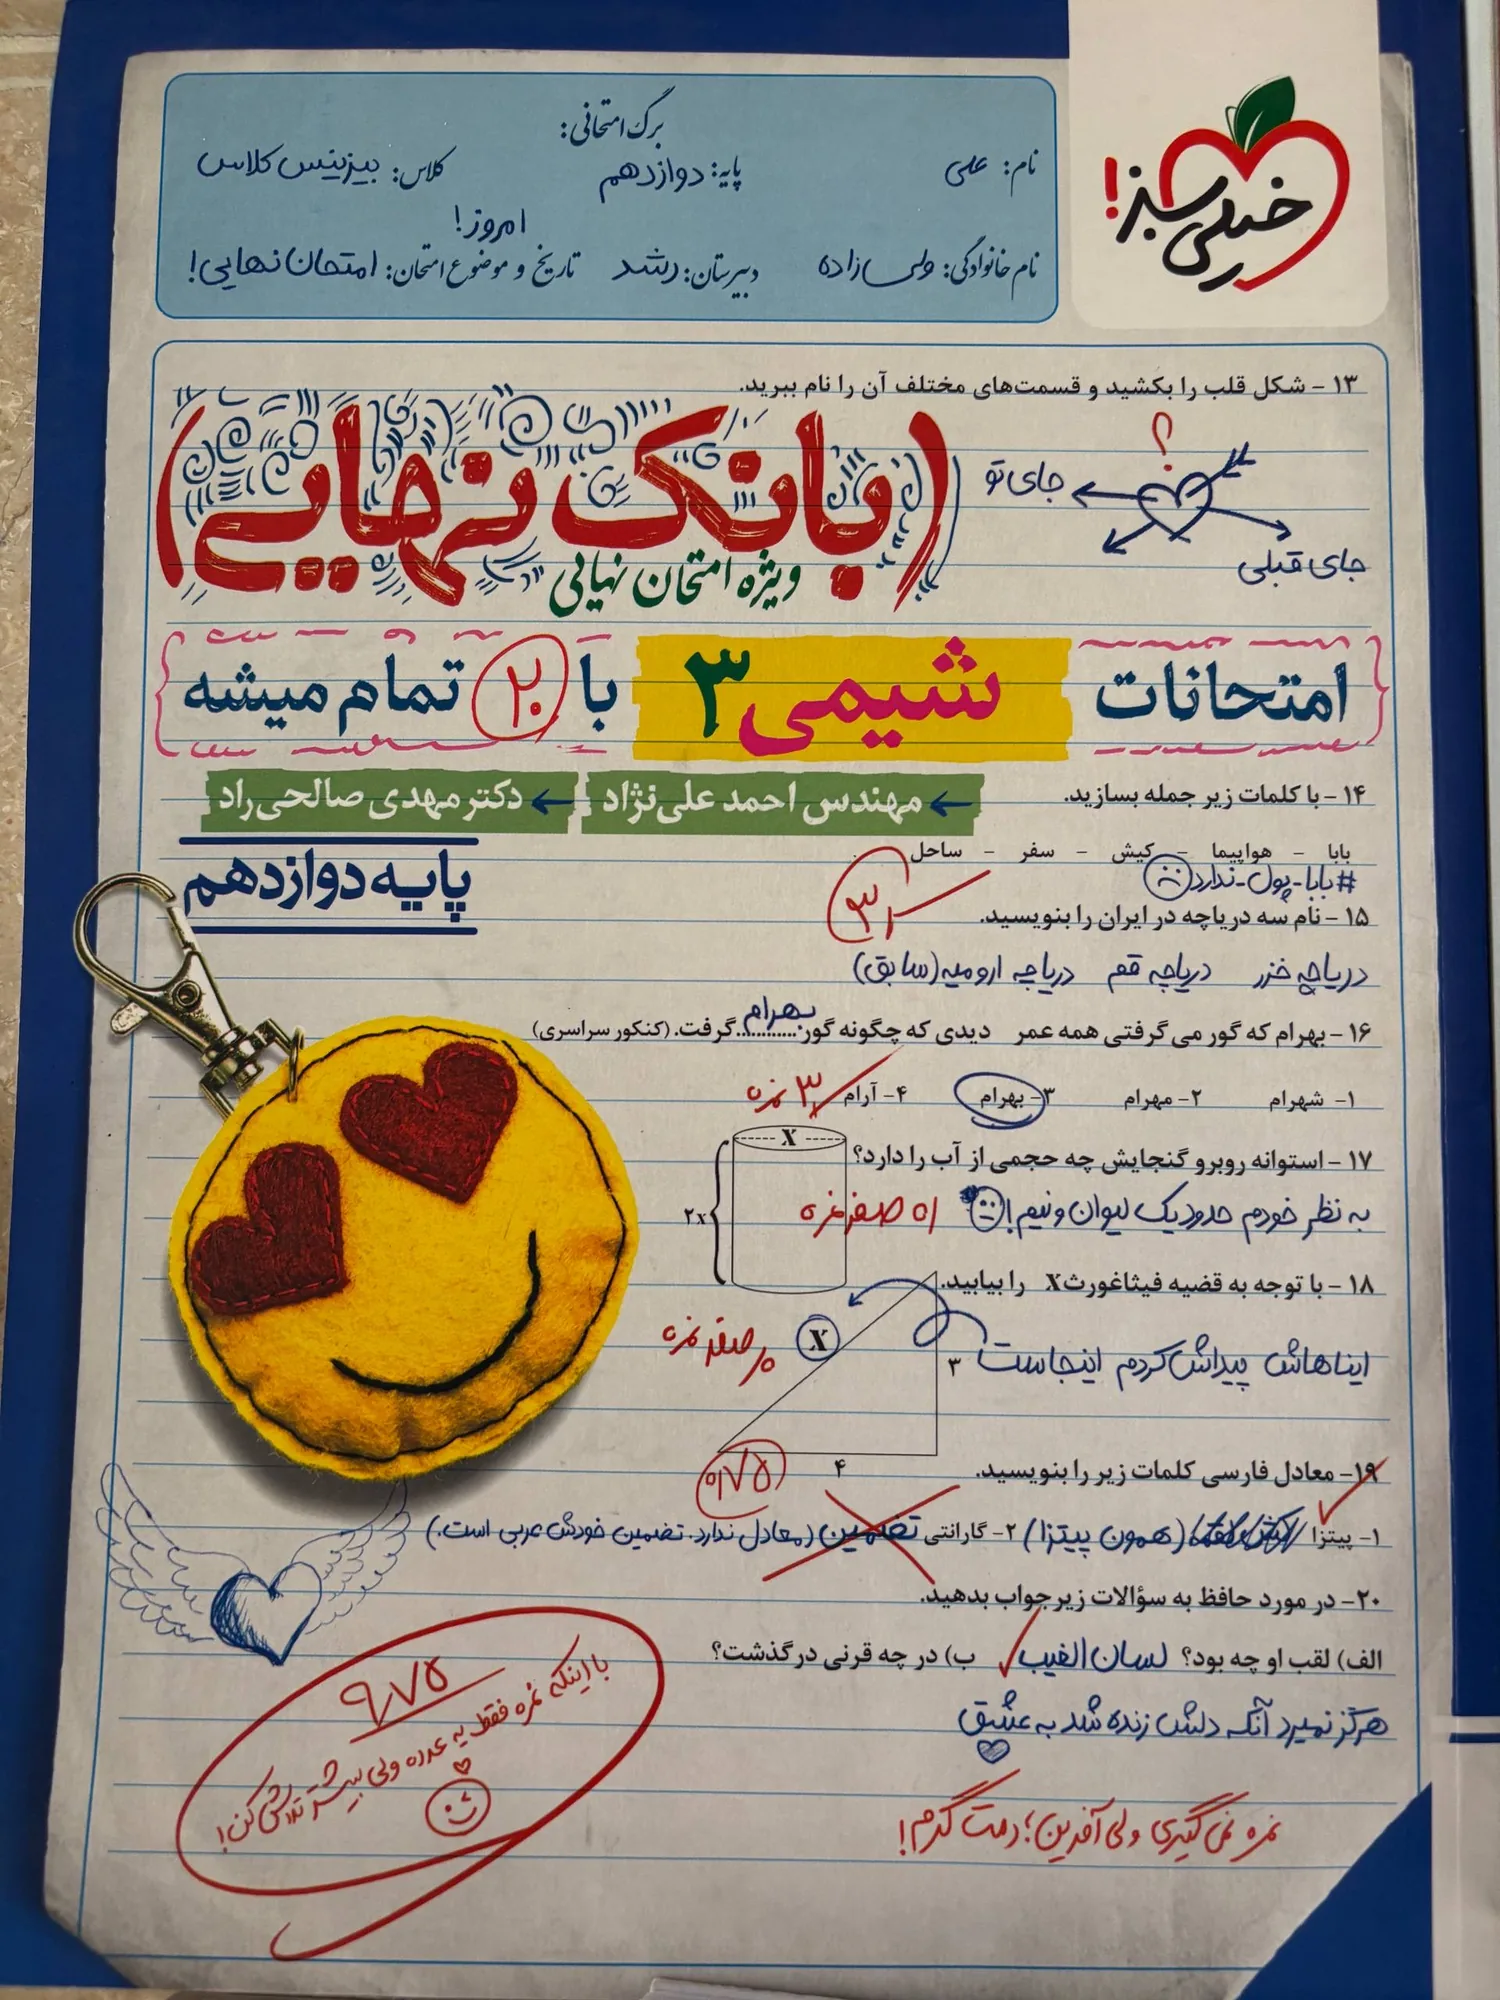 خیلی سبز!
برگ امتحانی:
نام: علی پایه: دوازدهم کلاس: بیزینس کلاس
امروز!
نام خانوادگی: ولی‌زاده دبیرستان: رشد تاریخ و موضوع امتحان: امتحان نهایی!
۱۳ - شکل قلب را بکشید و قسمت‌های مختلف آن را نام ببرید.
؟
جای تو
جای قبلی
(بانک نهایی)
ویژه امتحان نهایی
امتحانات شیمی ۳ با ۲۰ تمام میشه
مهندس احمد علی‌نژاد دکتر مهدی صالحی‌راد
پایه دوازدهم
۱۴ - با کلمات زیر جمله بسازید.
بابا - هواپیما - کیش - سفر - ساحل
#بابا-پول-ندارد
۱۵ - نام سه دریاچه در ایران را بنویسید.
دریاچه خزر دریاچه قم دریاچه ارومیه (سابق)
۱۶ - بهرام که گور می‌گرفتی همه عمر دیدی که چگونه گور ...بهرام... گرفت. (کنکور سراسری)
۱- شهرام ۲- مهرام ۳- بهرام ۴- آرام
۱۷ - استوانه روبرو گنجایش چه حجمی از آب را دارد؟
X
۲x
به نظر خودم حدود یک لیوان و نیم!
صفر نمره
۱۸ - با توجه به قضیه فیثاغورث X را بیابید.
X
۳
۴
ایناهاش پیداش کردم اینجاست
صفر نمره
۰/۷۵
۱۹- معادل فارسی کلمات زیر را بنویسید.
۱- پیتزا (همون پیتزا) ۲- گارانتی تضمین (معادل ندارد. تضمین خودش عربی است.)
۲۰- در مورد حافظ به سؤالات زیر جواب بدهید.
الف) لقب او چه بود؟ لسان الغیب ب) در چه قرنی درگذشت؟
هرگز نمیرد آنکه دلش زنده شد به عشق
نمره نمی‌گیری ولی آفرین؛ دمت گرم!
۹/۷۵
با اینکه نمره فقط یه عدده ولی بیشتر تلاش کن!